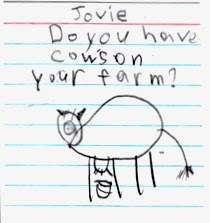 Jovie
Do you have
cows on
your farm?